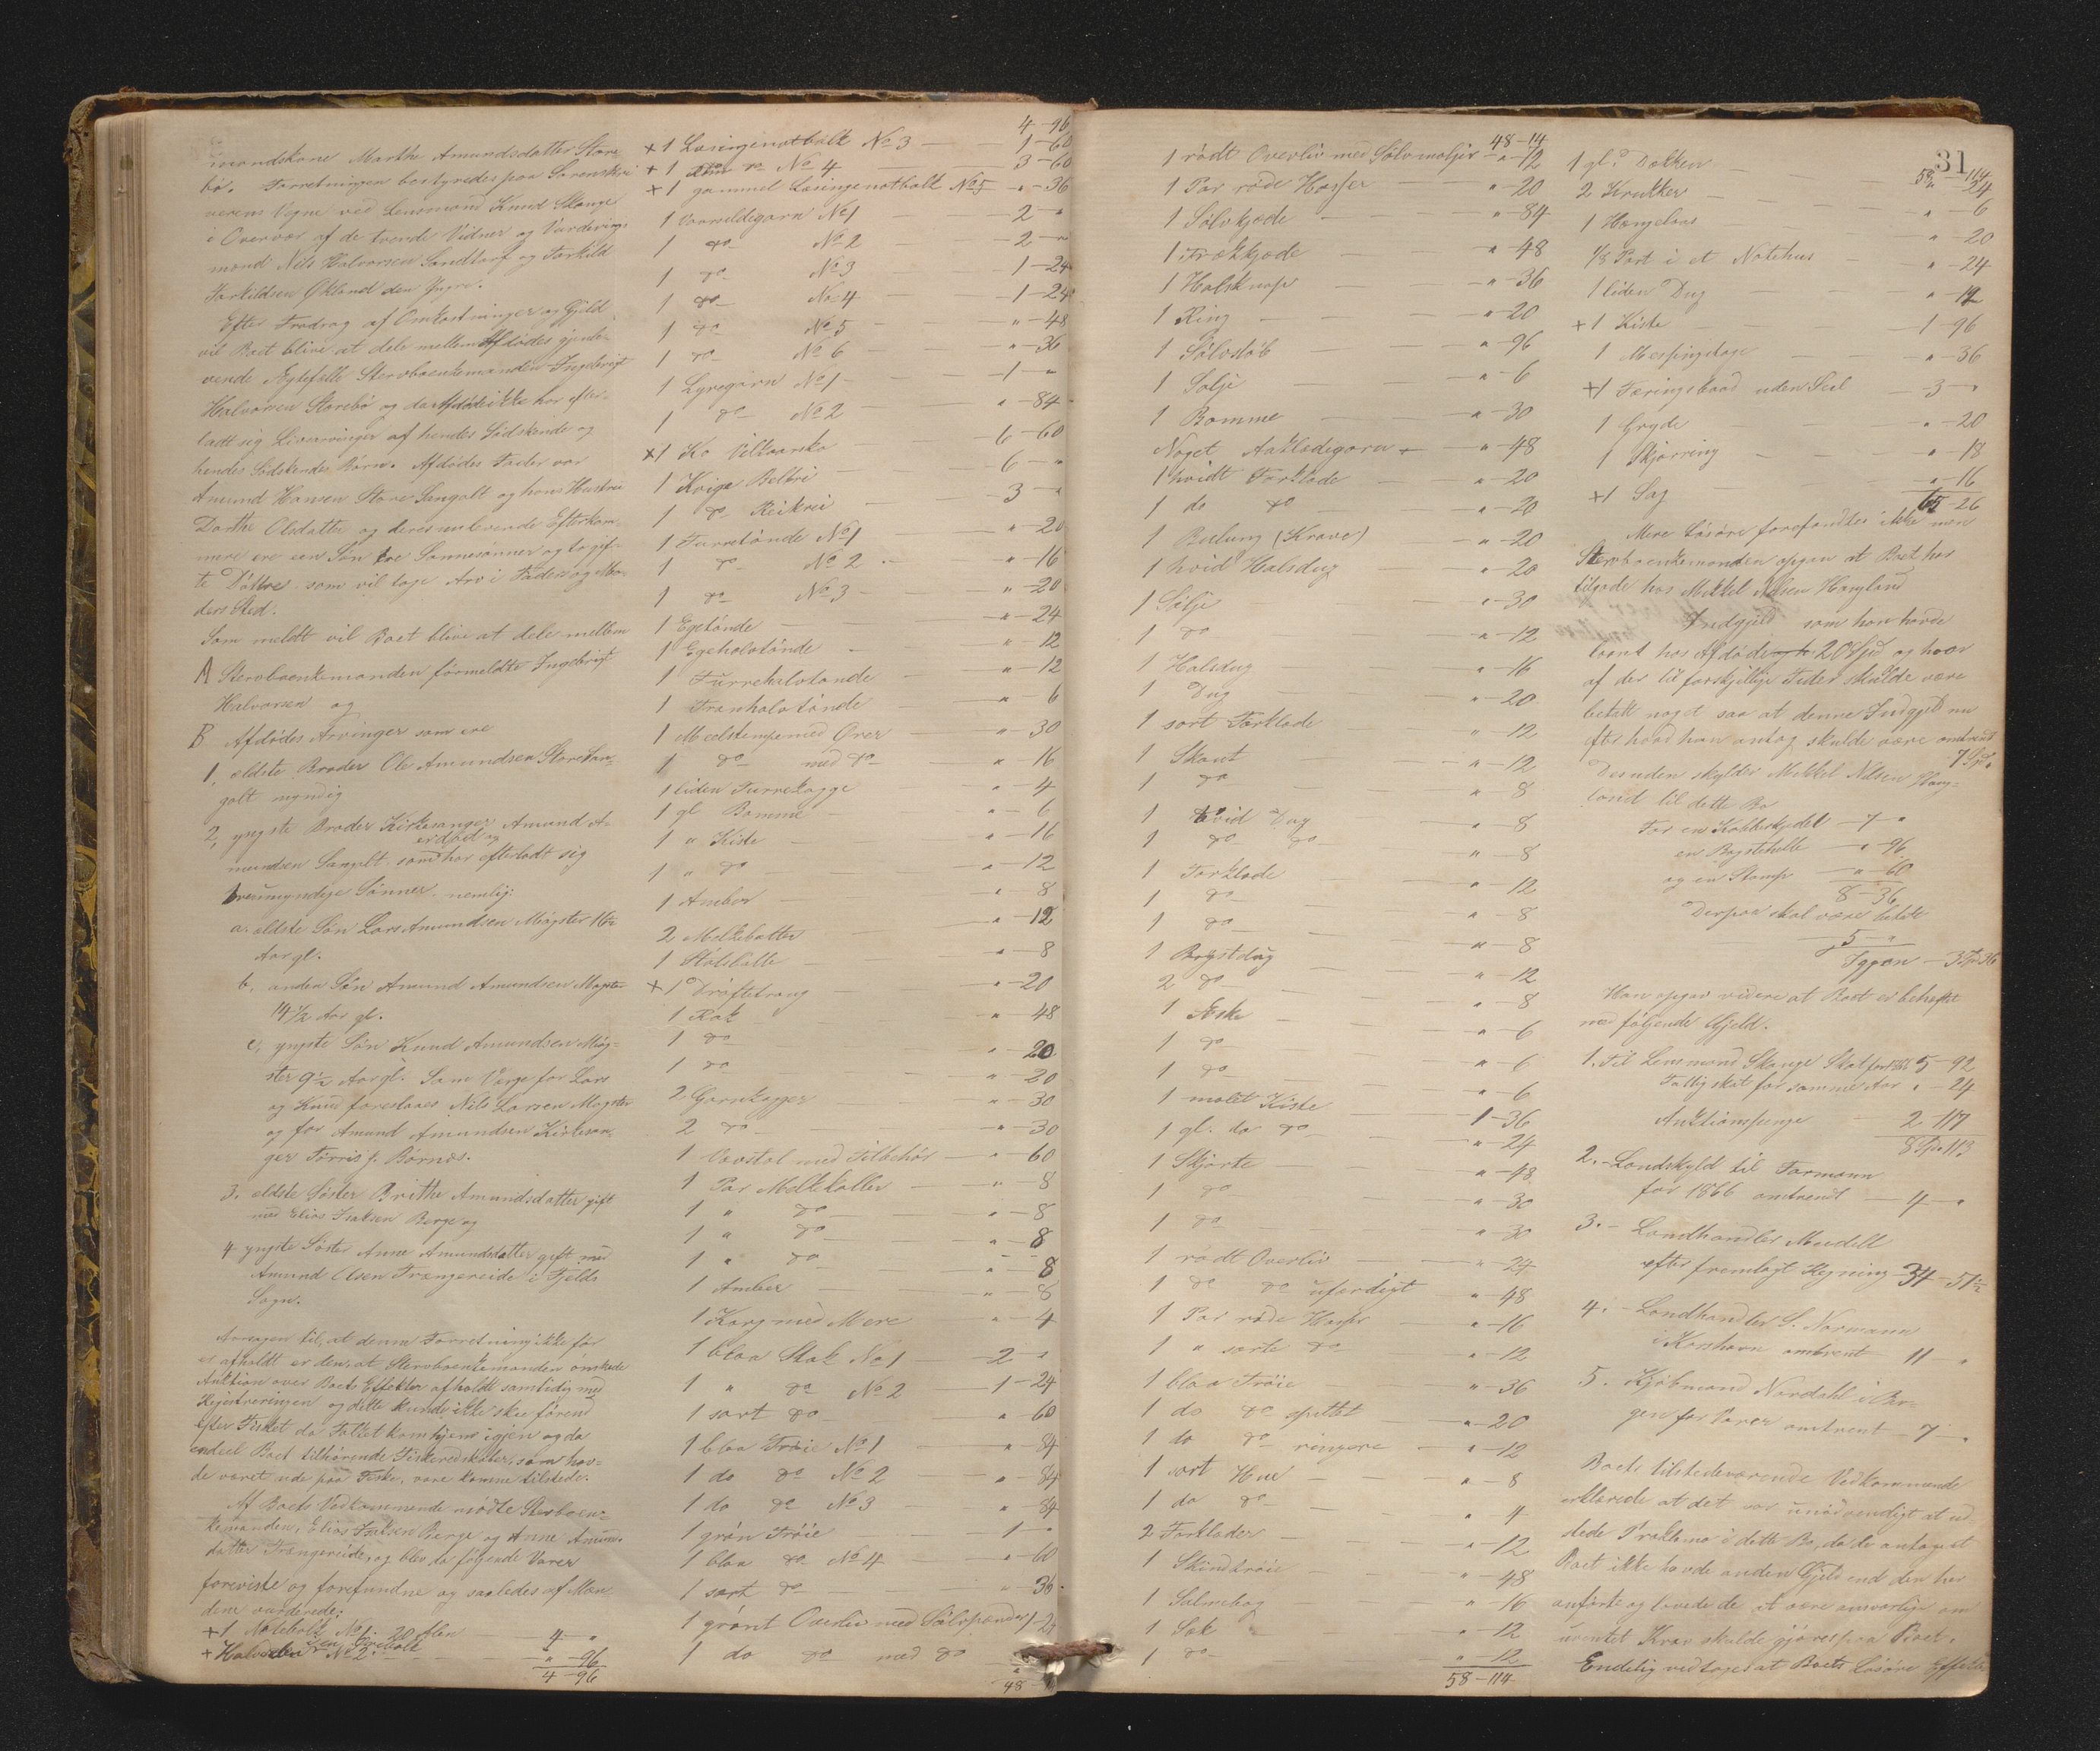 mandskone Marthe Amundsdatter Store
bø. Forretningen bestyredes paa Sorenskri
verens Vegne ved Lensmand Knud Skauge
i Overvær af de tvende Vidner og Vurderings
mænd Nils Halvorsen Sandtorf og Torkild
Torkildsen Økland den Yngre.
Efter Fradrag af Omkostninger og Gjeld
vil Boet blive at dele mellem Afdødes gjenle-
vende Ægtefælle Stervboenkemanden Ingebrigt
Halvorsen Storebø og da Afdøde ikke har efter-
ladt sig Livsarvinger af hendes Sødskende og
hendes Sødskendes Børn. Afdødes Fader var
Amund Hansen Store Sangolt og hans Hustru
Dorthe Olsdatter og deres nulevende Efterkom-
mere ere een Søn tre Sønnesønner og to gif-
te Døttre som vil tage Arv i Faders og Mo-
ders Sted.
Som meldt vil Boet blive at dele mellem
A Stervboenkemanden førmeldte Ingebrigt
Halvorsen og
B Afdødes Arvinger som ere
1, ældste Broder Ole Amundsen Store San-
golt myndig
2, yngste Broder Kirkesanger Amund A-
mundsen Sangolt som er død og har efterladt sig
tre umyndige Sønner nemlig:
a. ældste Søn Lars Amundsen Møgster 16½
Aar gl.
b, anden Søn Amund Amundsen Møgster
14½ Aar gl.
c, yngste Søn Knud Amundsen Møg-
ster 9½ Aar gl. Som Verge for Lars
og Knud foreslaaes Nils Larsen Møgster
og for Amund Amundsen Kirkesan-
ger Tørris J. Børnes.
3. eldste Søster Brithe Amundsdatter gift
med Elias Isaksen Berge og
4 yngste Søster Anne Amundsdatter gift med
Amund Olsen Trængereide i Fjelds
Sogn.
Aarsagen til, at denne Forretning ikke før
er afholdt er den, at Stervboenkemanden ønskede
Auktion over Boets Effekter afholdt samtidig med
Registreringen og dette kunde ikke skee førend
efter Fisket da Folket kom hjem igjen og da
endeel Boet tilhørende Fiskeredskaber, som hav-
de været ude paa Fiske, vare komne tilstede.
Af Boets Vedkommende mødte Stervboen-
kemanden, Elias Isaksen Berge og Anne Amun-
datter Trængereide, og blev da følgende Varer
foreviste og forefundne og saaledes af Mæn
dene vurderede:
+1 Notebolk No 1. 20 Alen — 4 - "
+ Halvdelen i en Notebolk No 2. — " - 96
4 - 96
4 - 96
+1 Lasingenotbolk No 3 — 1-60
+1 do do No 4 — 3-60
+1 gammel Lasingenotbolk No 5 — " -36
1 Vaarsildegarn No 1 — 2 - "
1 do No 2 — 2 - "
1 do No 3 — 1-24
1 do No 4 — 1-24
1 do No 5 — " -48
1 do No 6 — " -36
1 Lyregarn No 1 — 1 - "
1 do No 2 — " -84
+1 Ko Velkaarsko — 6-60
1 Kvige Beltrei — 6 - "
1 do Reikrei — 3 - "
1 Furretønde No 1 — " -20
1 do No 2 — " -16
1 do No 3 — " -20
1 Egetønde — " -24
1 Egehalvtønde — " -12
1 Furrehalvtønde — " -12
1 Tranhalvtønde — " -6
1 Meelstampe med Ører — " -30
1 do med do — " -16
1 liden Furrekagge — " -4
1 gl Bomme — " -6
1 " Kiste — " -16
1 " do — " -12
1 Amber — " -8
2 Melkebøtter — " -12
1 Stølsbolle — " -8
+1 Drøftetroug — " -20
1 Rok — " -48
1 do — " -20
1 do — " -20
2 Garnkagger — " -30
2 do — " -30
1 Vævstol med Tilbehør — " -60
1 Par Melkekoller — " -8
1 " do — " -8
1 " do — " -8
1 " do — " -8
1 Amber — " -8
1 Korg med Mere — " -4
1 blaa Stak No 1 — 2 - "
1 " do No 2 — 1-24
1 sort do — " -60
1 blaa Trøie No 1 — " -84
1 do do No 2 — " -84
1 do do No 3 — " -84
1 grøn Trøie — 1 - "
1 blaa do No 4 — " -60
1 sort do — " -36
1 grønt Overliv med Sølvspænder 1-2
1 do do med do
48
48-14
1 rødt Overliv med Sølvmaljer — " -12
1 Par røde Hasser — " -20
1 Sølvkjæde — " -84
1 Trækkjæde — " -48
1 Halsknap — " -36
1 Ring — " -20
1 Sølvstøb — " -96
1 Solje — " -6
1 Bomme — " -30
Noget Aaklædegarn — " -48
1 hvidt Forklæde — " -20
1 do do — " -20
1 Bulung (Krave) — " -20
1 hvid Halsdug — " -20
1 Sølje — " -30
1 do — " -12
1 Halsdug — " -16
1 Dug — " -20
1 sort Forklæde — " -12
1 Skaut — " -12
1 do — " -8
1 hvid Dug — " -8
1 do do — " -8
1 Forklæde — " -12
1 do — " -8
1 do — " -8
1 Brystdug — " -12
2 do — " -8
1 Æske — " -6
1 do — " -6
1 do — " -6
1 malet Kiste — 1-36
1 gl. do do — " -24
1 Skjorte — " -48
1 do — " -30
1 do — " -30
1 rødt Overliv — " -24
1 do do ufærdigt " -48
1 Par røde Hasser — " -16
1 " sorte do — " -12
1 blaa Trøie — " -36
1 do do splittet — " -20
1 do do ringere — " -12
1 sort Hue — " -8
1 do do — " -4
2 Forklæder — " -12
1 Skindtrøie — " -48
1 Salmebog — " -16
1 Sæk — " -12
1 do — " -12
58-114
31
58-114
1 gl. Dækken — " -24
2 Krukker — " -6
1 Hængelaas — " -20
1/8 Part i et Notehus — " -24
1 liden Dug — " -12
+1 Kiste — 1-96
1 Messingtøie — " -36
+1 Færingsbaad uden Seil — 3 - "
1 Gryde — " -20
1 Skjørring — " -18
+1 Sag — " -16
65-26
Mere Løsøre forefandtes ikke men
Stervboenkemanden opgav at Boet har
tilgode hos Mikkel Nilsen Haugland
Indgjeld som han havde
laant hos Afdøde 20 Spd og hvor
af der til forskjellige Tider skulde være
betalt noget saa at denne Indgjeld nu
efter hvad han antog skulde være omtrent
7 Spd.
Desuden skylder Mikkel Nilsen Haug-
land til dette Bo
For en Kobberkjedel — 7 - "
en Bagstehelle — " -96
og en Stamp — " -60
8-36
Derpaa skal være betalt
5 - "
Igjen — 3 Spd 36
Han opgav videre at Boet er beheftet
med følgende Gjeld.
1. Til Lensmand Skauge Skat for 1865 5-92
Fattigskat for samme Aar " -24
Auktionspenge 2-117
8 Spd 113
2. - Landskyld til Formann
for 1866 omtrent — 4 - "
3. - Landhandler Mudell
efter fremlagt Regning 34-51½
4. - Landhandler S. Normann
i Korshavn omtrent 11 - "
5. Kjøbmand Nordahl i Ber-
gen for Varer omtrent — 7 - "
Boets tilstedeværende Vedkommende
erklærede at det var unødvendigt at ud-
stede Proklama i dette Bo, da de antog at
Boet ikke havde anden Gjeld end den her
anførte og lovede de at være ansvarlige om
uventet Krav skulde gjøres paa Boet.
Endelig vedtoges at Boets Løsøre Effekter